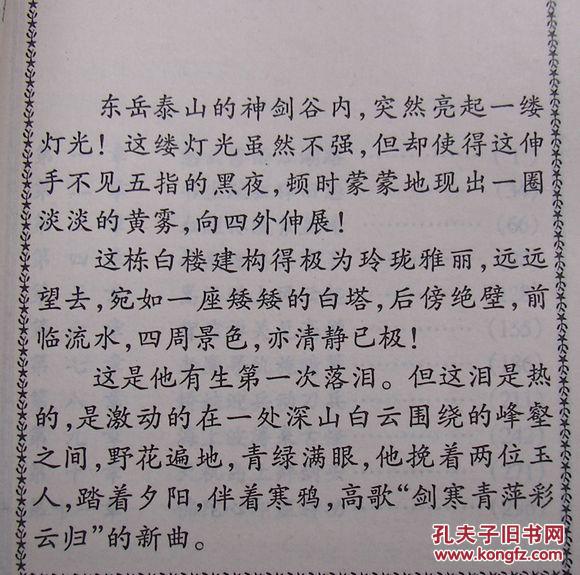 东岳泰山的神剑谷内，突然亮起一缕
灯光！这缕灯光虽然不强，但却使得这伸
手不见五指的黑夜，顿时蒙蒙地现出一圈
淡淡的黄雾，向四外伸展！
这栋白楼建构得极为玲珑雅丽，远远
望去，宛如一座矮矮的白塔，后傍绝壁，前
临流水，四周景色，亦清静已极！
这是他有生第一次落泪。但这泪是热
的，是激动的在一处深山白云围绕的峰壑
之间，野花遍地，青绿满眼，他挽着两位玉
人，踏着夕阳，伴着寒鸦，高歌“剑寒青萍彩
云归”的新曲。
孔夫子旧书网
www.kongfz.com